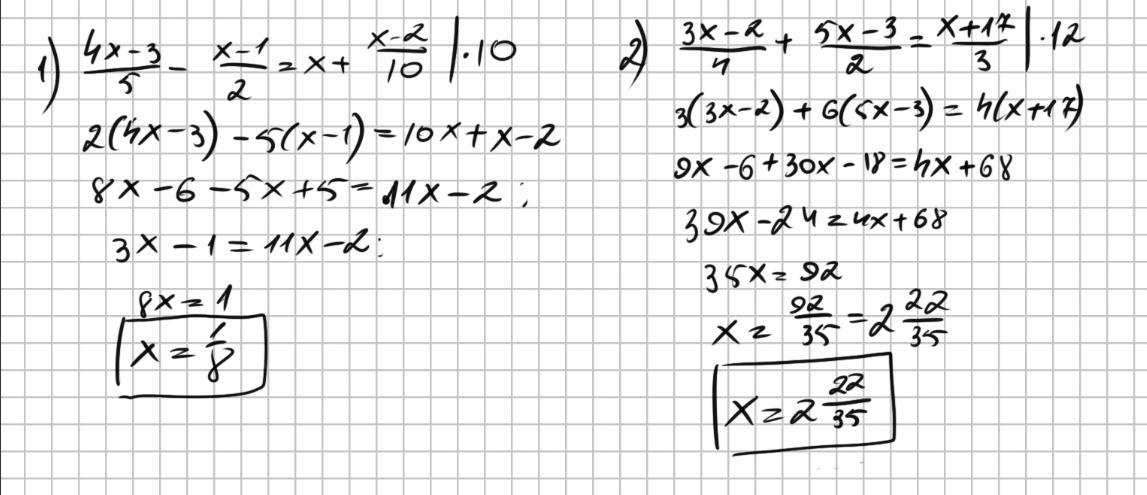 1) (4x-3)/5 - (x-1)/2 = x + (x-2)/10 | ·10
2(4x-3) - 5(x-1) = 10x + x - 2
8x - 6 - 5x + 5 = 11x - 2 ;
3x - 1 = 11x - 2 :
8x = 1
x = 1/8
2) (3x-2)/4 + (5x-3)/2 = (x+17)/3 | ·12
3(3x-2) + 6(5x-3) = 4(x+17)
9x - 6 + 30x - 18 = 4x + 68
39x - 24 = 4x + 68
35x = 92
x = 92/35 = 2 22/35
x = 2 22/35